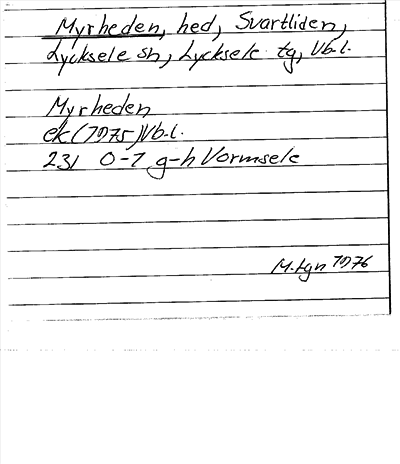 Myrheden, hed, Svartliden,
Lycksele sn, Lycksele tg, Vb.l.
Myrheden
ek (1975) Vb.l.
23I 0-1 g-h Vormsele
M.tgn 1976